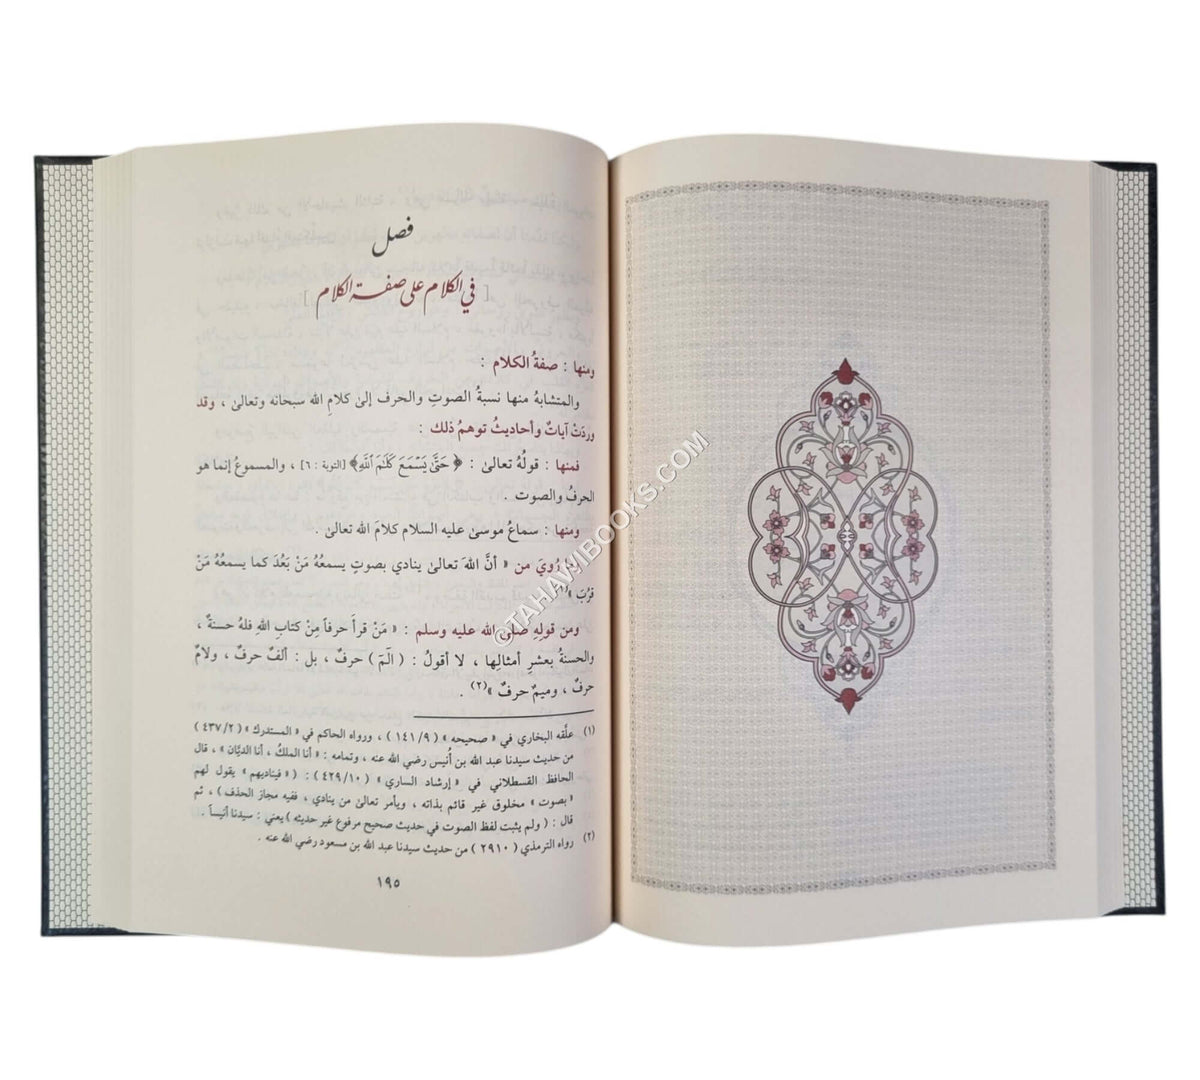 فصل
[ في الكلام على صفة الكلام ]
ومنها : صفةُ الكلام :
والمتشابهُ منها نسبةُ الصوتِ والحرف إلىٰ كلامِ الله سبحانه وتعالىٰ ، وقد
وردَتْ آياتٌ وأحاديثُ توهمُ ذلك :
فمنها : قولُهُ تعالىٰ : ﴿ حَتَّىٰ يَسْمَعَ كَلَٰمَ ٱللَّهِ ﴾ [التوبة : ٦] ، والمسموعُ إنما هو
الحرفُ والصوت .
ومنها : سماعُ موسىٰ عليه السلام كلامَ الله تعالىٰ .
رُوِيَ من « أنَّ اللهَ تعالىٰ ينادي بصوتٍ يسمعُهُ مَنْ بَعُدَ كما يسمعُهُ مَنْ
قَرُبَ »(١)
ومن قولِهِ صلَّى الله عليه وسلم : « مَنْ قرأَ حرفاً مِنْ كتابِ اللهِ فلهُ حسنةٌ ،
والحسنةُ بعشرِ أمثالِها ، لا أقولُ : ( الٓمٓ ) حرفٌ ، بل : ألفٌ حرفٌ ، ولامٌ
حرفٌ ، وميمٌ حرفٌ »(٢) .
(١) علَّقه البخاري في « صحيحه » ( ١٤١/٩ ) ، ورواه الحاكم في « المستدرك » ( ٤٣٧/٢ )
من حديث سيدنا عبد الله بن أُنيس رضي الله عنه ، وتمامه : « أنا الملكُ ، أنا الديَّان » ، قال
الحافظ القسطلاني في « إرشاد الساري » ( ٤٢٩/١٠ ) : ( « فيناديهم » يقول لهم
« بصوت » مخلوق غير قائم بذاته ، ويأمر تعالىٰ من ينادي ، ففيه مجاز الحذف ) ، ثم
قال : ( ولم يثبت لفظ الصوت في حديث صحيح مرفوع غير حديثه ) يعني : سيدنا أنيساً .
(٢) رواه الترمذي ( ٢٩١٠ ) من حديث سيدنا عبد الله بن مسعود رضي الله عنه .
١٩٥
©TAHAWIBOOKS.COM